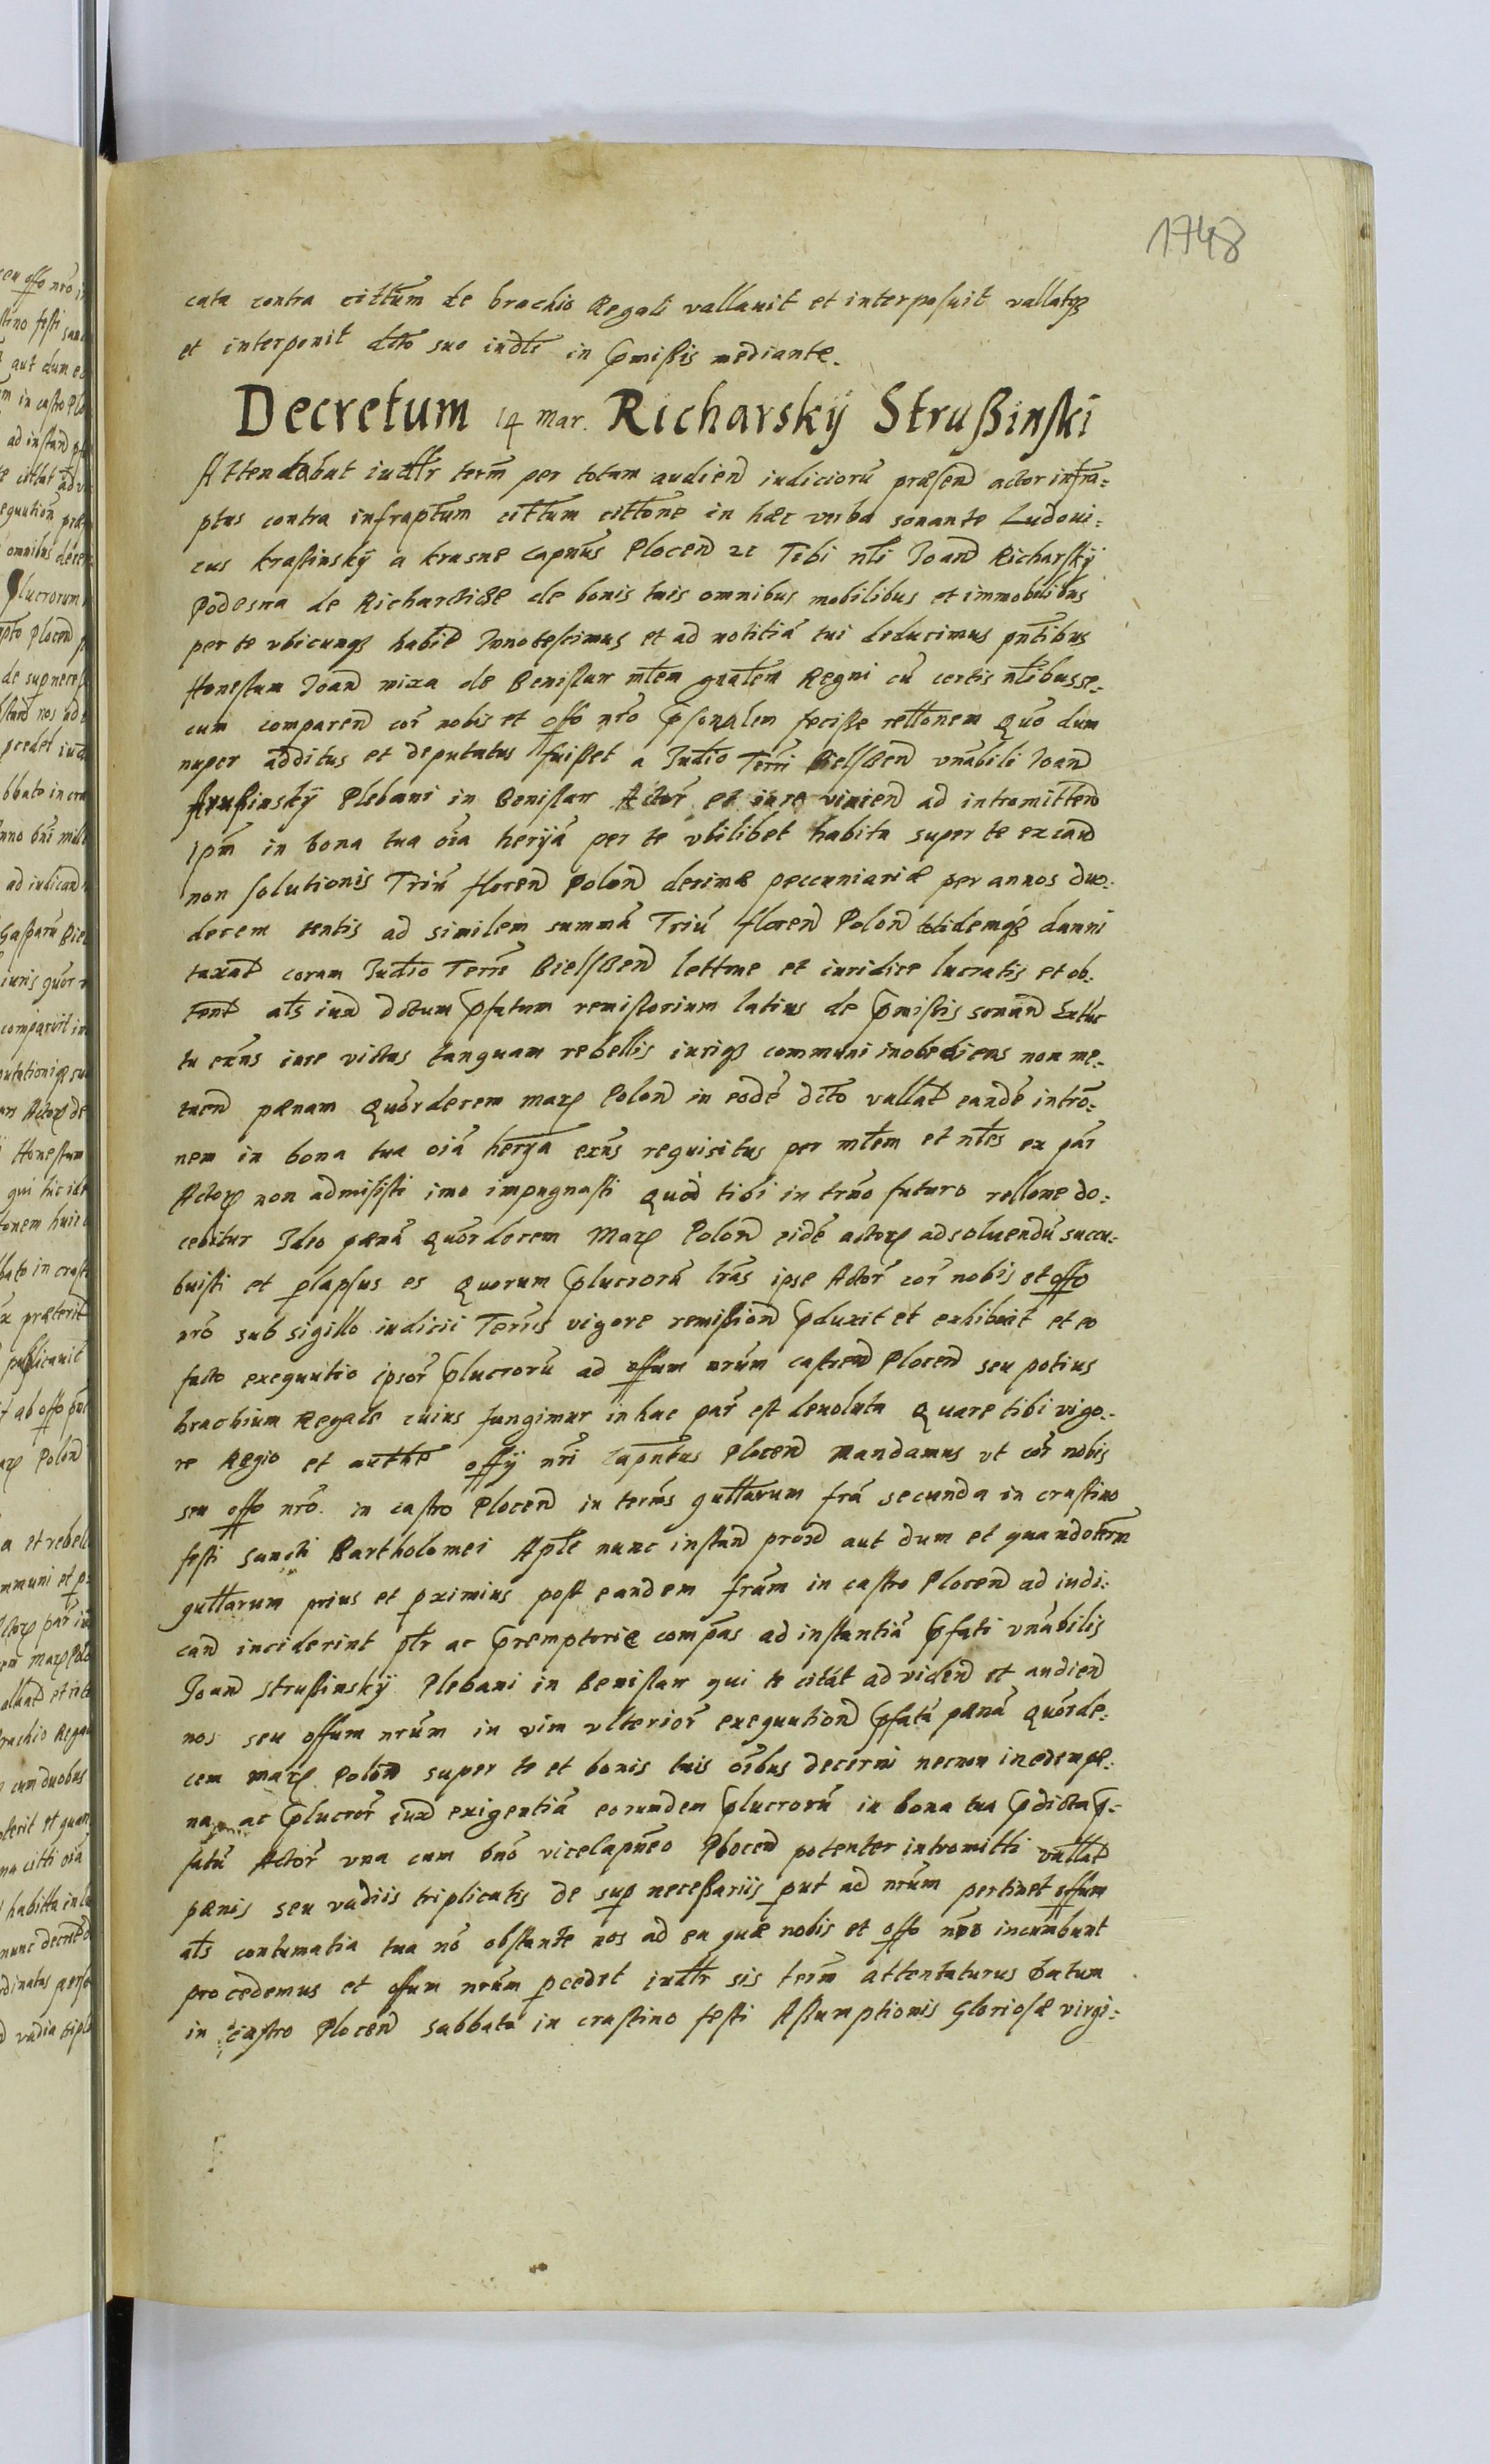 1748
cata contra cittum de brachio Regali vallauit et interposuit vallatqz
et interponit dcto suo iudli in pmißis mediante.
Decretum 14 Mar. Richarskÿ Strußinski
Attendebat iudlr term per totam audien iudiciorū præsen actor infra=
ptus contra infraptum cittum cittone in hæc verba sonante Ludoui=
cus Krasinskÿ a Krasne Capneus Plocen zc Tibi nli Joan Richarskÿ
Podesna de Richarcicze de bonis tuis omnibus mobilibus et immobilibus
per te vbicunqz habit Innotescimus et ad notitiā tui deducimus pntibus
Honestum Joan mixa de Benislaw mlem gnalem Regni cū certis nlibus se=
cum comparen cor nobis et offo nro psonalem feciße rellonem Quo dum
nuper additus et deputatus fuißet a Judio Terri Bielscen vnabili Joan
strußinskÿ Plebani in Benislaw Actor et iure vincen ad intromitten
ipm in bona tua oīa herÿā per te vbilibet habita super te ex cau
non solutionis Triū floren Polon decimæ peccuniariæ per annos duo=
decem tentis ad similem summā Triū floren Polon totidemqz damni
taxat coram Judio Terri Bielscen lettme et iuridice lucratis et ob=
tent als iux dctum pfatum remissorium latius de pmißis sonan Ex tūc
tu exns iure victus tanquam rebellis iuriqz communi inobediens non me=
tuen pænam Quordecem marz Polon in eodē dcto vallat eandē intro=
nem in bona tua oīa herÿa exns requisitus per mlem et nles ex par
Actorz non admisisti imo impugnasti Quod tibi in trno futuro rellone do=
cebitur Ideo pænā Quordecem Marz Polon eidē actorz ad soluendū succu=
buisti et plapsus es Quorum plucrorū lras ipse Actor cor nobis et offo
nro sub sigillo iudicii Terris vigore remißion pduxit et exhibuit et eo
facto exequutio ipsor plucrorū ad offum nrum castren Plocen seu potius
brachium Regale cuius fungimur in hac par est deuoluta Quare tibi vigo=
re Regio et authe offÿ nri Capntus Plocen mandamus vt cor nobis
seu offo nro in castro Plocen in terms quttarum frā secunda in crastino
festi sancti Bartholomei Aple nunc instan prox aut dum et quando term
quttarum prius et pximius post eandem frām in castro Plocen ad iudi=
can inciderint plr ac premptorie compas ad instantiā pfati vnabilis
Joan strußinskÿ Plebani in Benislaw qui te citat ad viden et audien
nos seu offum nrum in vim vlterior exequution pfatā pænā Quorde=
cem marz Polon super te et bonis tuis oibus decerni necnon in edem pæ=
na ac plucror iux exigentiā eorundem plucrorū in bona tua pdicta p=
fatū Actor vna cum bno vicecapneo Plocen potenter intromitti vallat
pænis seu vadiis triplicatis de sup neceßariis put ad nrum pertinet offum
als contumatia tua nō obstante nos ad ea quæ nobis et offo nro incumbunt
procedemus et offum nrum pcedet iudlr sis term attentaturus Datum
in castro Plocen Sabbato in crastino festi Aßumptionis Gloriosæ virgi=